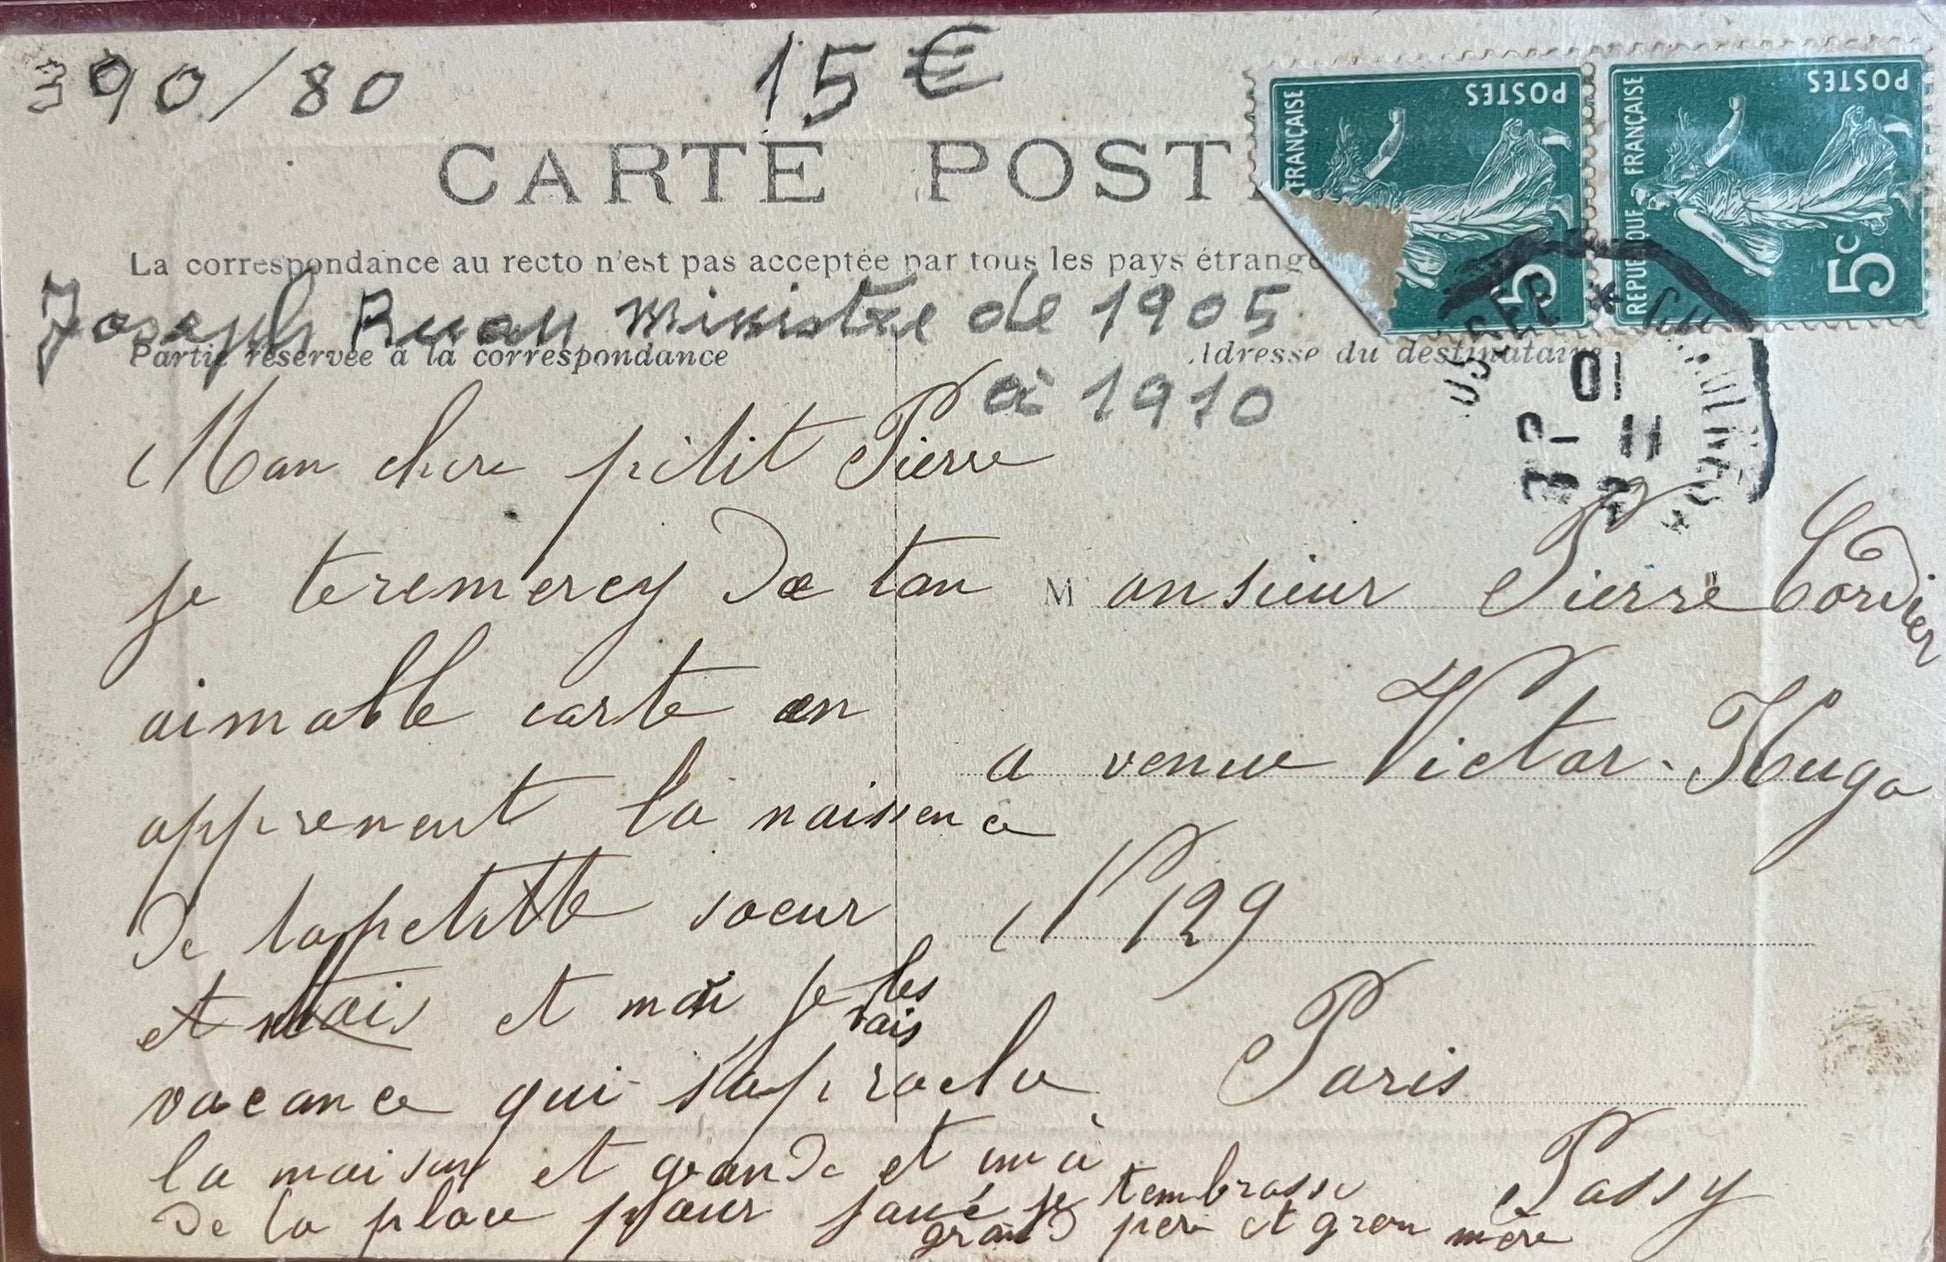 390/80
15 €
CARTE POST
POSTES
FRANÇAISE
5
POSTES
REPUBLIQUE FRANÇAISE
5c
La correspondance au recto n'est pas acceptée par tous les pays étrange
Joseph Ruau ministre de 1905
à 1910
Partie réservée à la correspondance
Adresse du destinataire
01
11
Mon cher pitit Pierre
je teremercy de ton
aimable carte en
apprenent la naissence
de lapetitte soeur
et mois et moi je les
vais
vacance qui saproche
la maison et grande et une
de la place pour joué je tembrasse
grand pere et gron mère
Monsieur Pierre Cordier
avenue Victor-Hugo
N 129
Paris
Passy